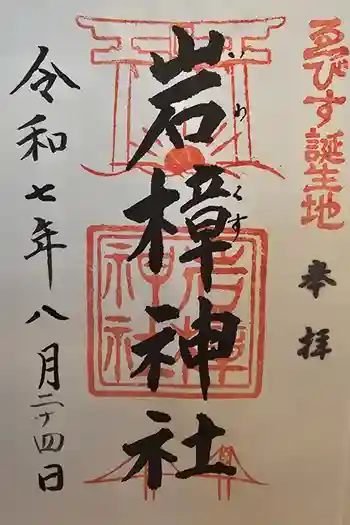 ゑびす誕生地
奉拝
岩樟神社
いわくす
岩樟神社
令和七年八月二十四日